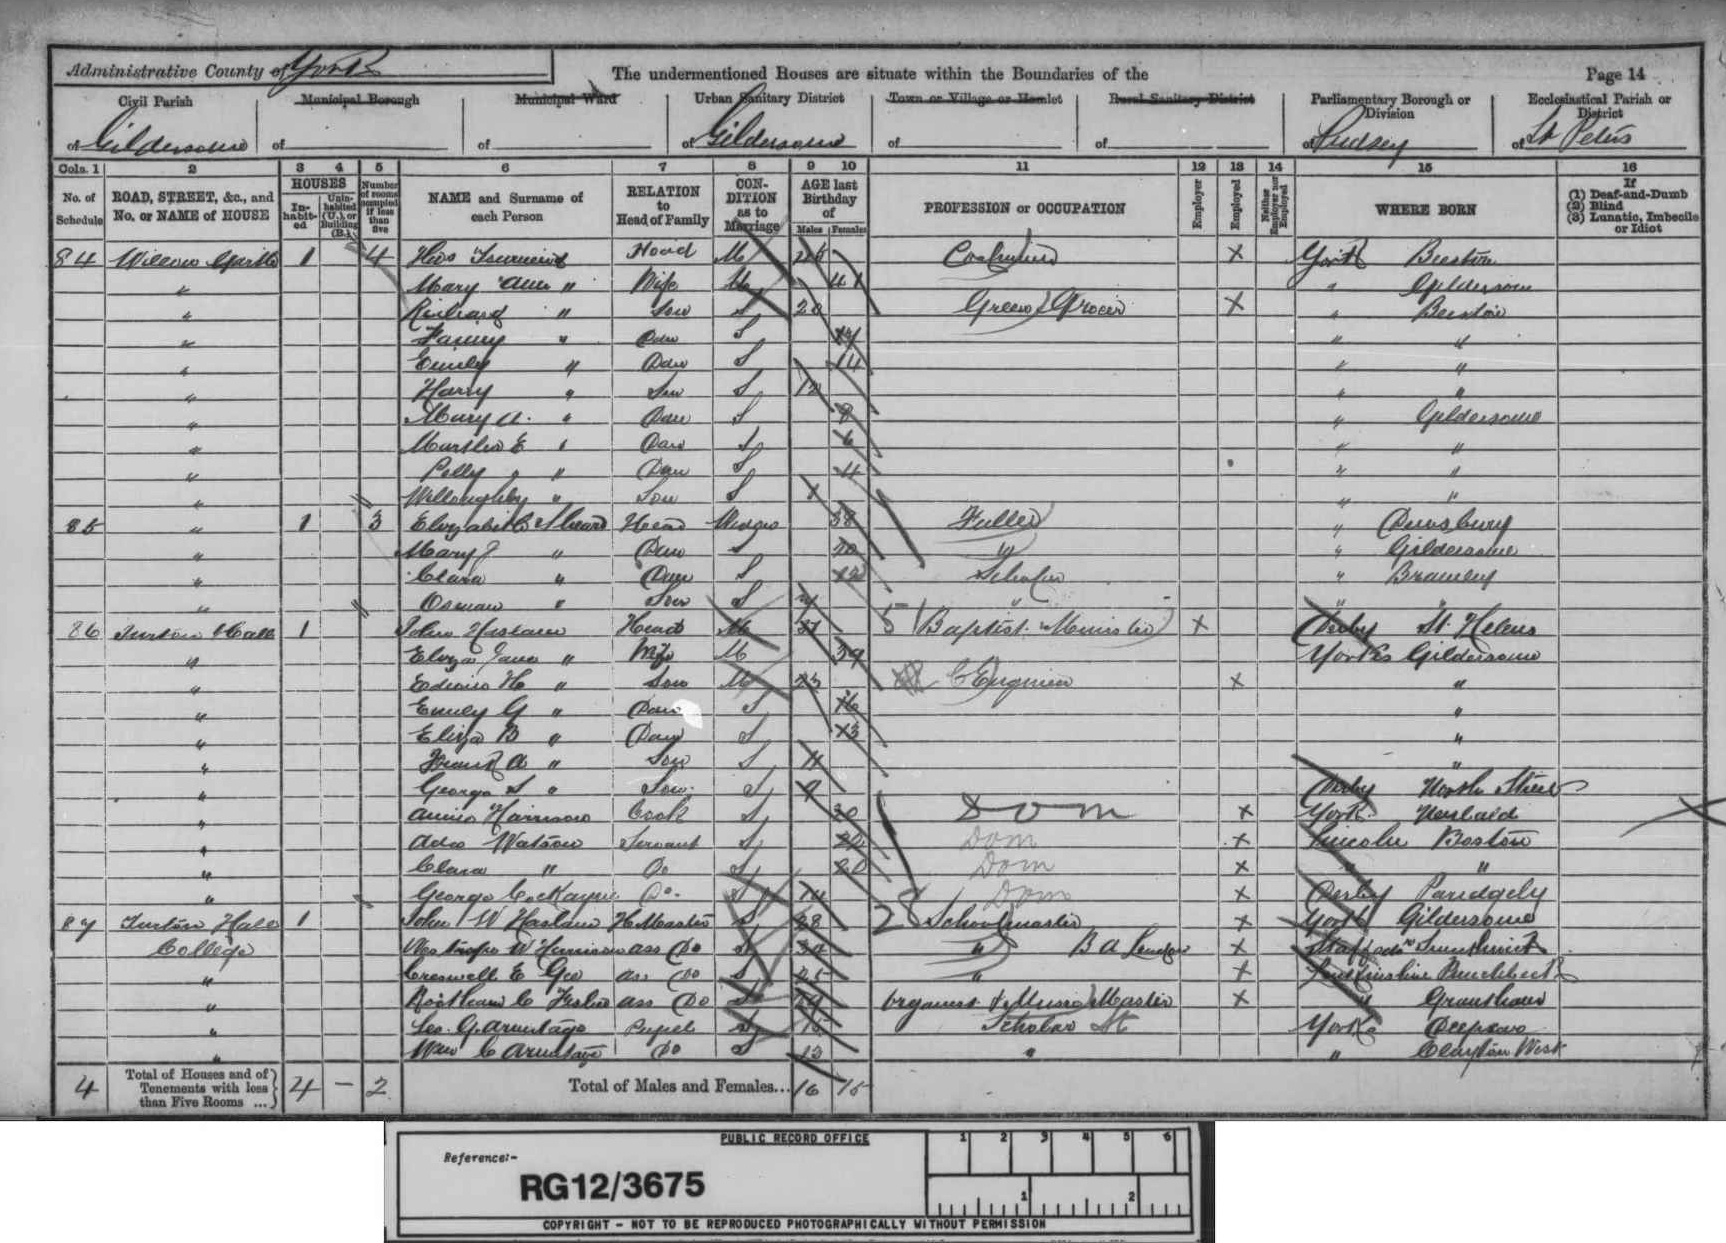 Administrative County of York
The undermentioned Houses are situate within the Boundaries of the
Page 14
Civil Parish of Gildersome
Municipal Borough of
Municipal Ward of
Urban Sanitary District of Gildersome
Town or Village or Hamlet of
Rural Sanitary District of
Parliamentary Borough or Division of Pudsey
Ecclesiastical Parish or District of St Peters
Cols. 1 2 3 4 5 6 7 8 9 10 11 12 13 14 15 16
No. of Schedule
ROAD, STREET, &c., and No. or NAME of HOUSE
HOUSES
Inhabited
Uninhabited (U.), or Building (B.)
Number of rooms occupied if less than five
NAME and Surname of each Person
RELATION to Head of Family
CONDITION as to Marriage
AGE last Birthday of
Males Females
PROFESSION or OCCUPATION
Employer
Employed
Neither Employer nor Employed
WHERE BORN
If (1) Deaf-and-Dumb (2) Blind (3) Lunatic, Imbecile or Idiot
84 Willow 1 4 Head M X York Beeston
" Mary Ann " Wife M 41 " Gildersome
" Richard " Son S 20 Green Grocer X " Beeston
" Fanny " Daw S " "
" Emily " Daw S 14 " "
" Harry " Son S 12 " "
" Mary A. " Daw S 8 " Gildersome
" Martha E " Daw S 6 " "
" Polly " Daw S 4 " "
" Willoughby " Son S " "
85 " 1 3 Head 38 Fuller "
" Mary " Daw S " " Gildersome
" Clara " Daw S 12 Scholar " Bramley
" " Son S " " "
86 Turton Hall 1 John Haslam Head M Baptist Minister X Derby St. Helens
" Eliza Jane " Wife M 39 Yorks Gildersome
" H " Son 23 C Engineer X "
" Emily G " Daw S 16 "
" Eliza B " Daw S 13 "
" Frank A " Son S 11 "
" George S " Son S 9 Derby North Street
" Annie Harrison Cook S 30 Dom X York
" Ada Watson Servant S Dom X Lincoln Boston
" Clara " Do S 20 Dom X " "
" George Cockayne Do. S Dom X Derby
87 Turton Hall College 1 John W Haslam H Master S 28 Schoolmaster X York Gildersome
W Harrison ass Do S " B A London X
" Creswell E Geo ass Do S 25 " X
" C ass Do S Organist & Music Master X " Grantham
" Geo. G. Armitage Pupil S 15 Scholar Yorks Deepcar
" Wm C Armitage Do S 13 " " Clayton West
4 Total of Houses and of Tenements with less than Five Rooms ... 4 – 2 Total of Males and Females... 16 15
PUBLIC RECORD OFFICE
1 2 3 4 5 6
Reference:-
RG12/3675
1 2
COPYRIGHT - NOT TO BE REPRODUCED PHOTOGRAPHICALLY WITHOUT PERMISSION